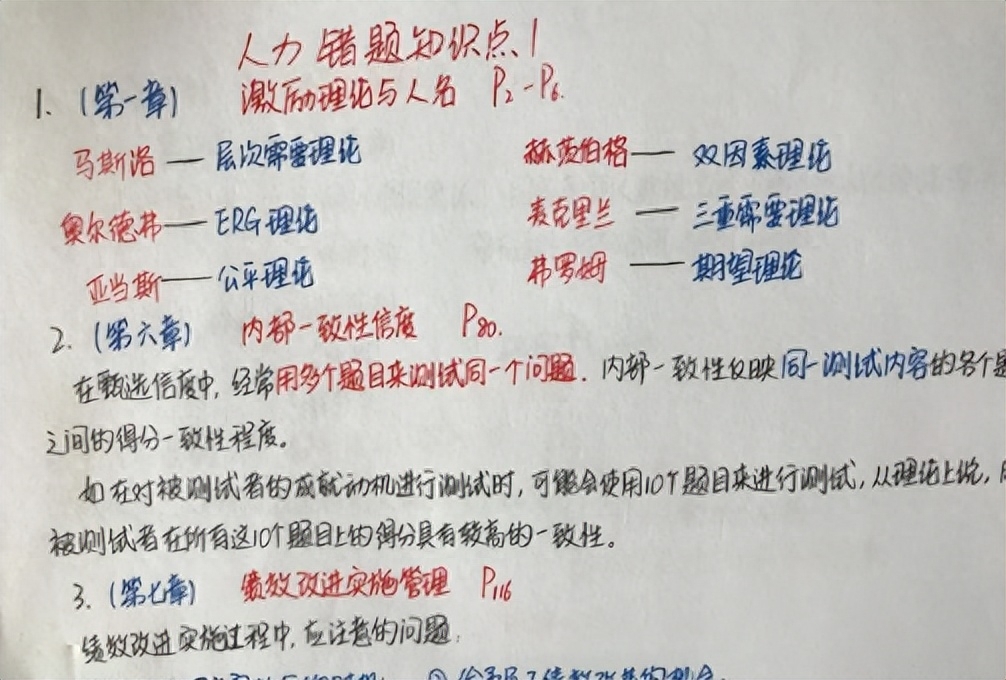 人力 错题知识点1
1. (第一章) 激励理论与人名 P2-P6.
马斯洛 — 层次需要理论 赫茨伯格 — 双因素理论
奥尔德弗 — ERG理论 麦克里兰 — 三重需要理论
亚当斯 — 公平理论 弗罗姆 — 期望理论
2. (第六章) 内部一致性信度 P80.
在甄选信度中, 经常用多个题目来测试同一个问题. 内部一致性反映同一测试内容的各个题
之间的得分一致性程度。
如在对被测试者的成就动机进行测试时, 可能会使用10个题目来进行测试, 从理论上说,
被测试者在所有这10个题目上的得分具有较高的一致性。
3. (第七章) 绩效改进实施管理 P116
绩效改进实施过程中, 应注意的问题: